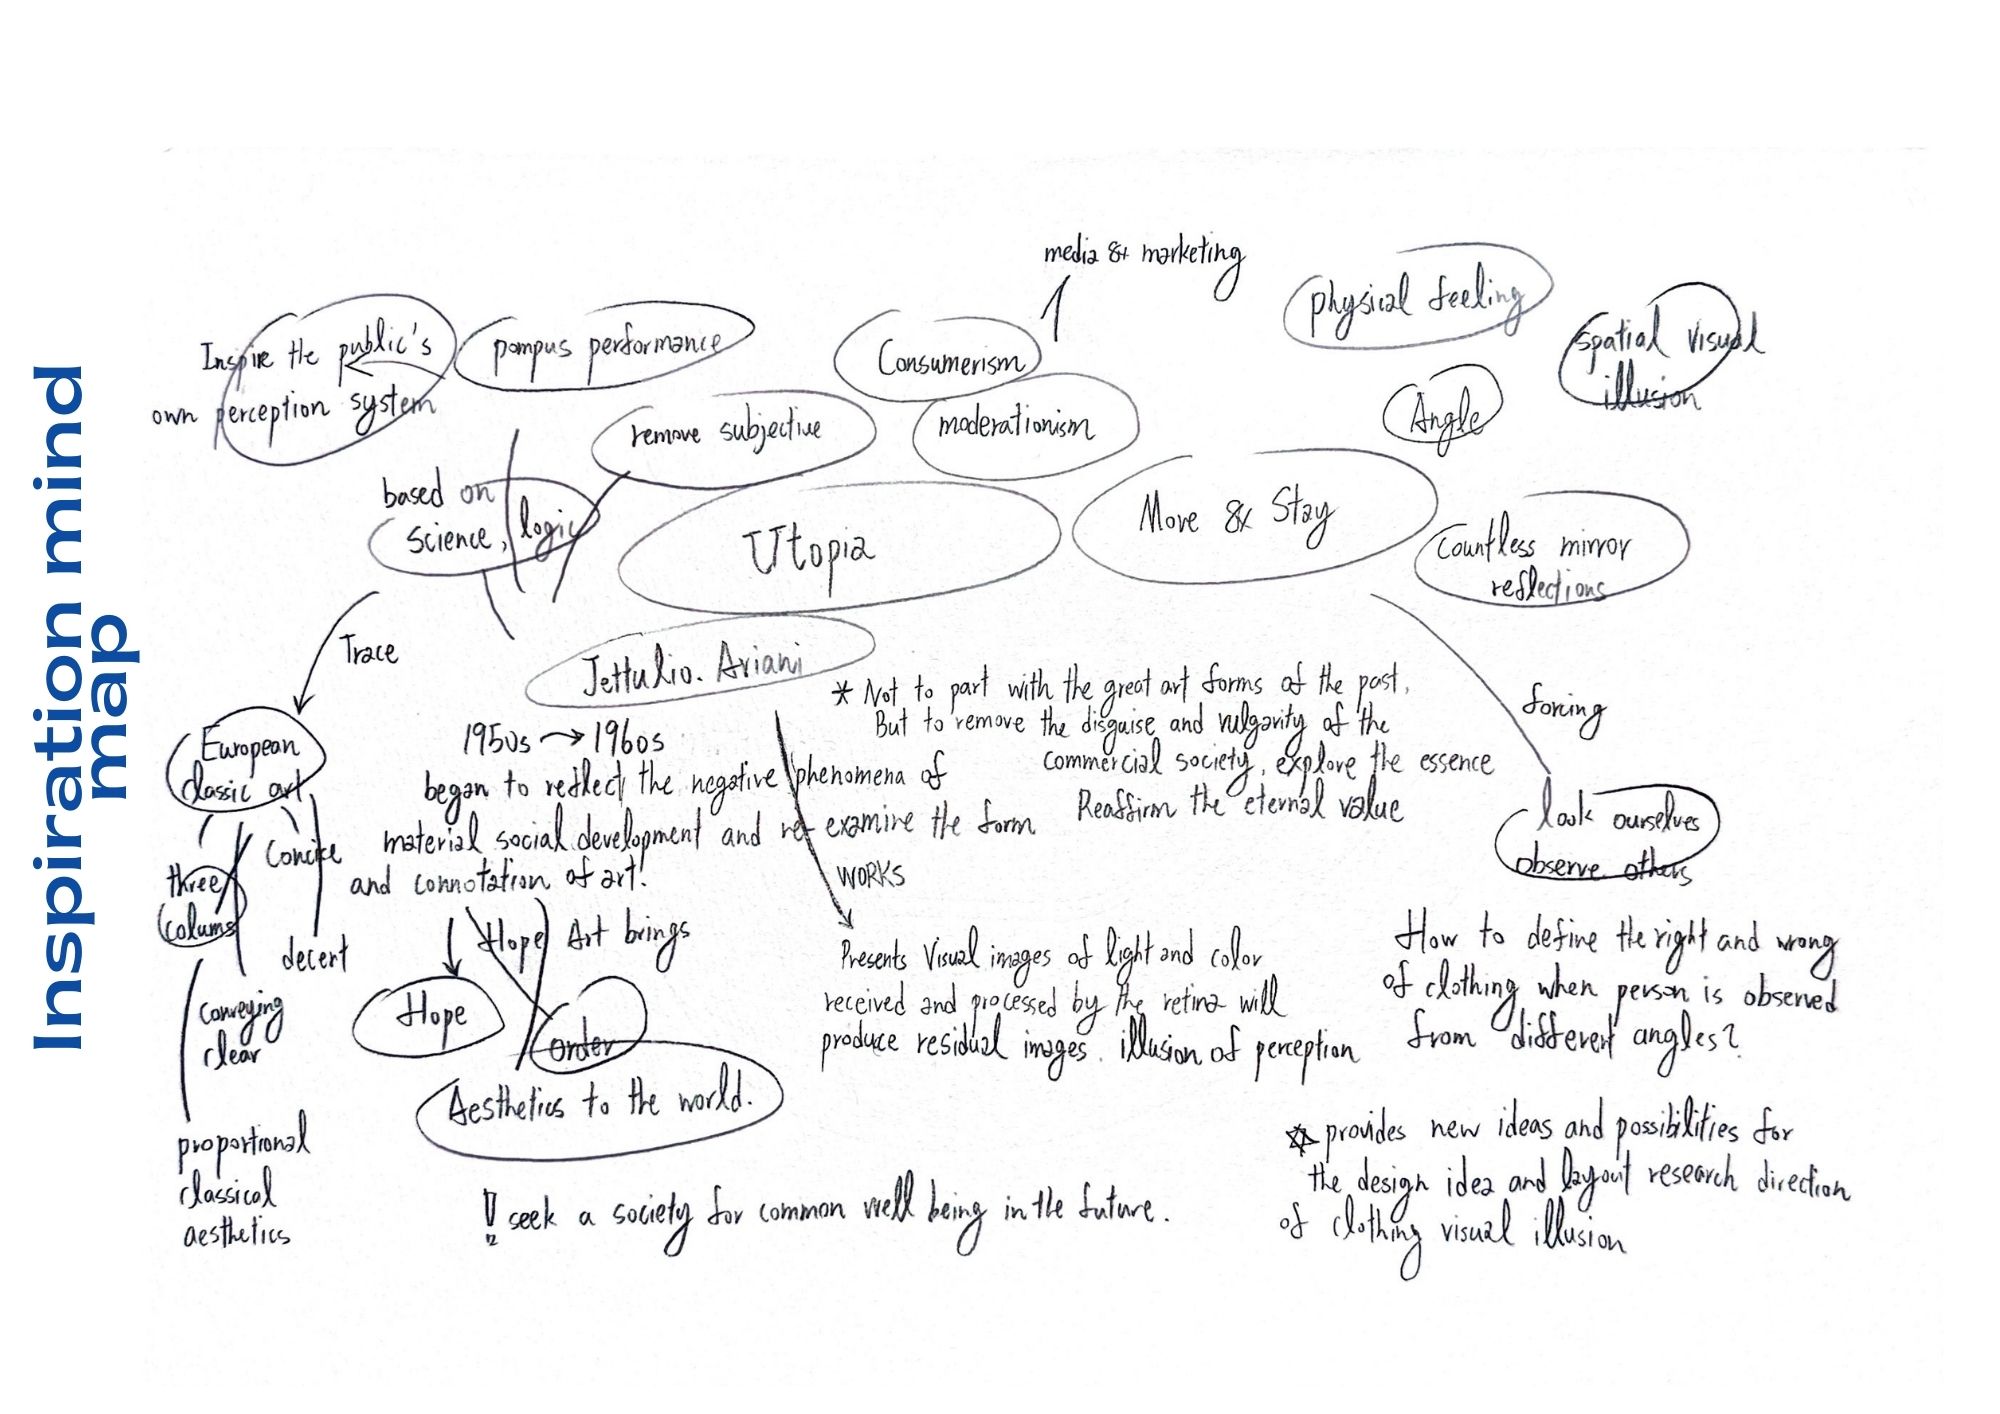 Inspiration mind
map
media & marketing
physical feeling
spatial visual
illusion
Inspire the public's
own perception system
pompus performance
Consumerism
Angle
remove subjective
moderationism
based on
science, logic
Utopia
Move & Stay
Countless mirror
reflections
Trace
Jettulio. Ariani
* Not to part with the great art forms of the past,
But to remove the disguise and vulgarity of the
commercial society, explore the essence
Reaffirm the eternal value
forcing
European
classic art
1950s → 1960s
began to reflect the negative phenomena of
material social development and re-examine the form
and connotation of art!
look ourselves
observe others
three
colums
Concise
decent
WORKS
Hope
Art brings
Hope
order
Aesthetics to the world.
conveying
clear
proportional
classical
aesthetics
Presents Visual images of light and color
received and processed by the retina will
produce residual images. illusion of perception
How to define the right and wrong
of clothing when person is observed
from different angles?
provides new ideas and possibilities for
the design idea and layout research direction
of clothing visual illusion
seek a society for common well being in the future.